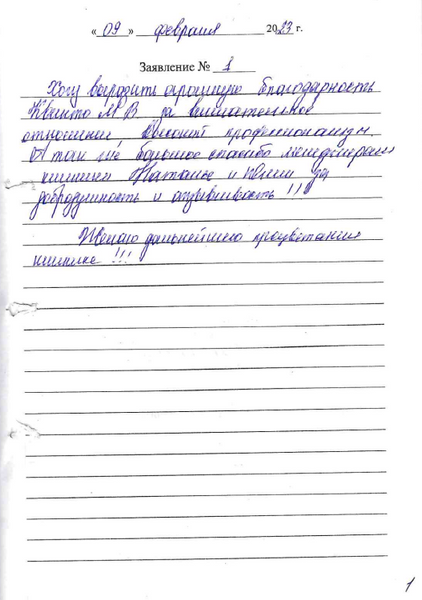 « 09 » февраля 2023 г.
Заявление № 1
Хочу выразить огромную благодарность
Квинто М В за внимательное
отношение высокий профессионализм.
А так же большое спасибо менеджерам
клиники Наталье и Юлии за
добродушность и отзывчивость !!!
Желаю дальнейшего процветания
клинике !!!
1